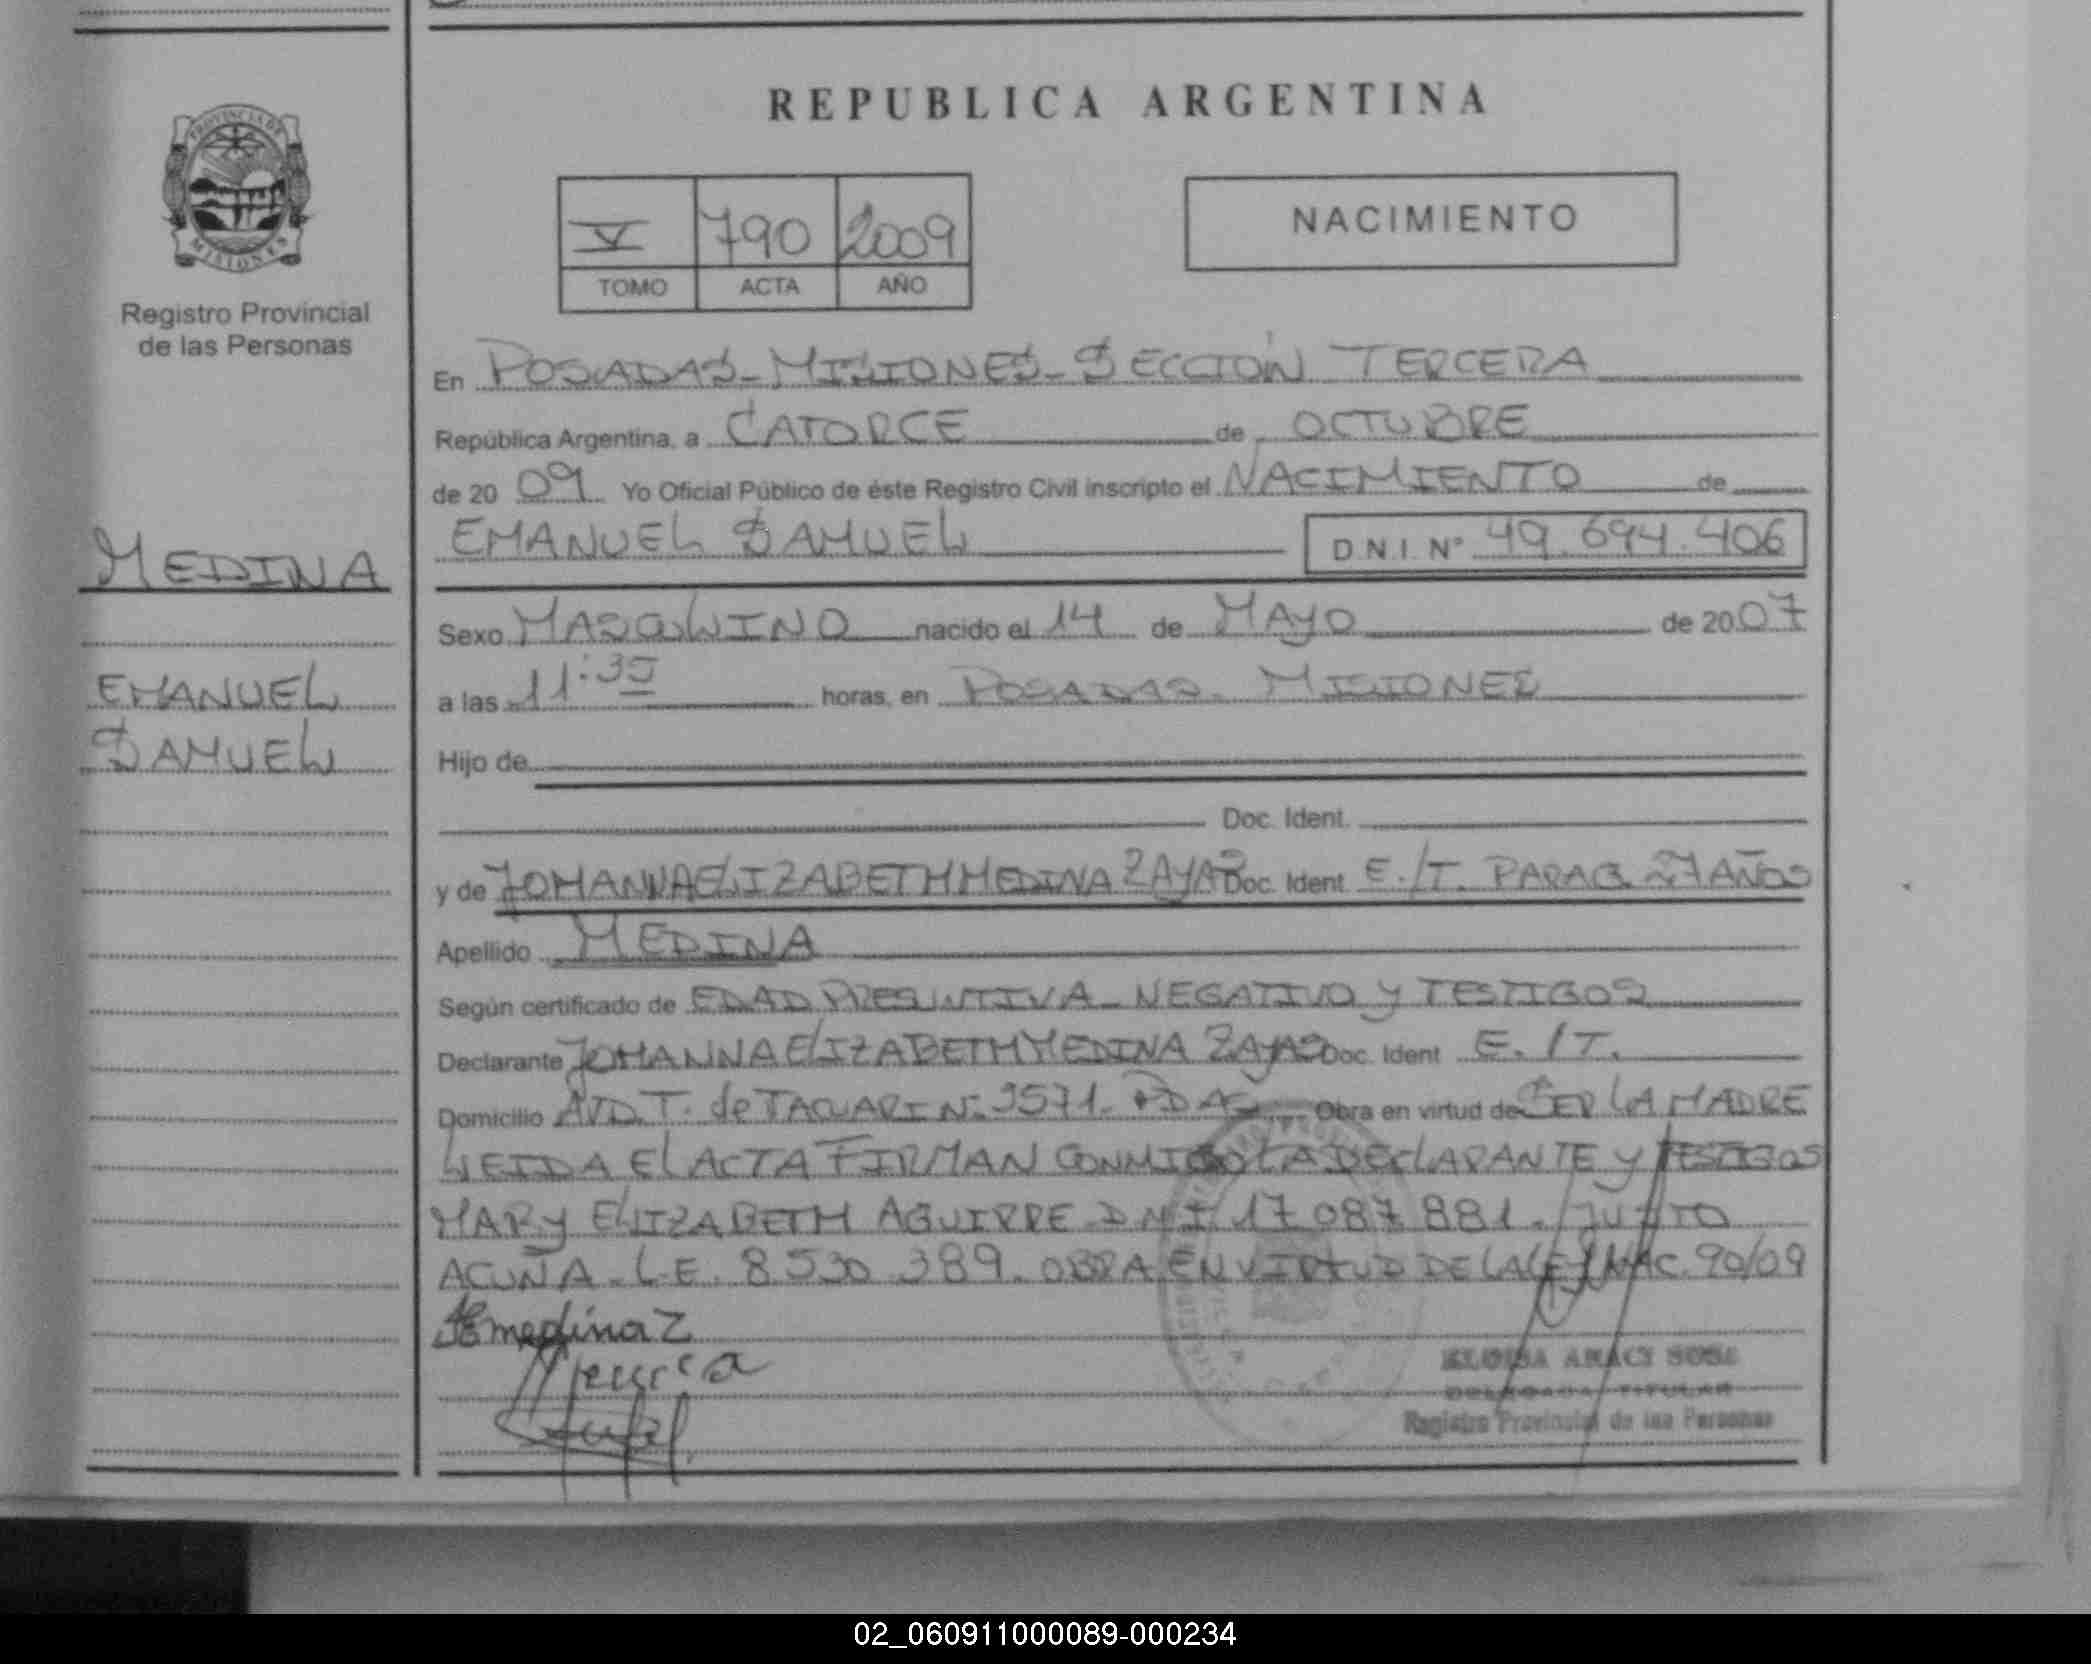 REPUBLICA ARGENTINA
PROVINCIA DE
MISIONES
Registro Provincial
de las Personas
V 790 2009
TOMO ACTA AÑO
NACIMIENTO
En POSADAS-MISIONES-SECCIÓN TERCERA
República Argentina, a CATORCE de OCTUBRE
de 20 09 Yo Oficial Público de éste Registro Civil inscripto el NACIMIENTO de
EMANUEL SAMUEL D.N.I. Nº 49.694.406
MEDINA
EMANUEL
SAMUEL
Sexo MASCULINO nacido el 14 de MAYO de 20 07
a las 11:35 horas, en POSADAS. MISIONES
Hijo de
Doc. Ident.
y de JOHANNA ELIZABETH MEDINA ZAYAS Doc. Ident E./T. PARAG. 27 AÑOS
Apellido MEDINA
Según certificado de EDAD PRESUNTIVA-NEGATIVO Y TESTIGOS
Declarante JOHANNA ELIZABETH MEDINA ZAYAS Doc. Ident E./T.
Domicilio AVD. T. de TACUARI Nº 3571. PDAS Obra en virtud de SER LA MADRE
LEIDA EL ACTA FIRMAN CONMIGO LA DECLARANTE Y TESTIGOS
MARY ELIZABETH AGUIRRE D.N.I. 17.087.881. JUSTO
ACUÑA. L.E. 8.530.389. OBRA EN VIRTUD DE LA LEY NAC. 90/09
JEmedina Z
DELEGADA TITULAR
Registro Provincial de las Personas
02_060911000089-000234